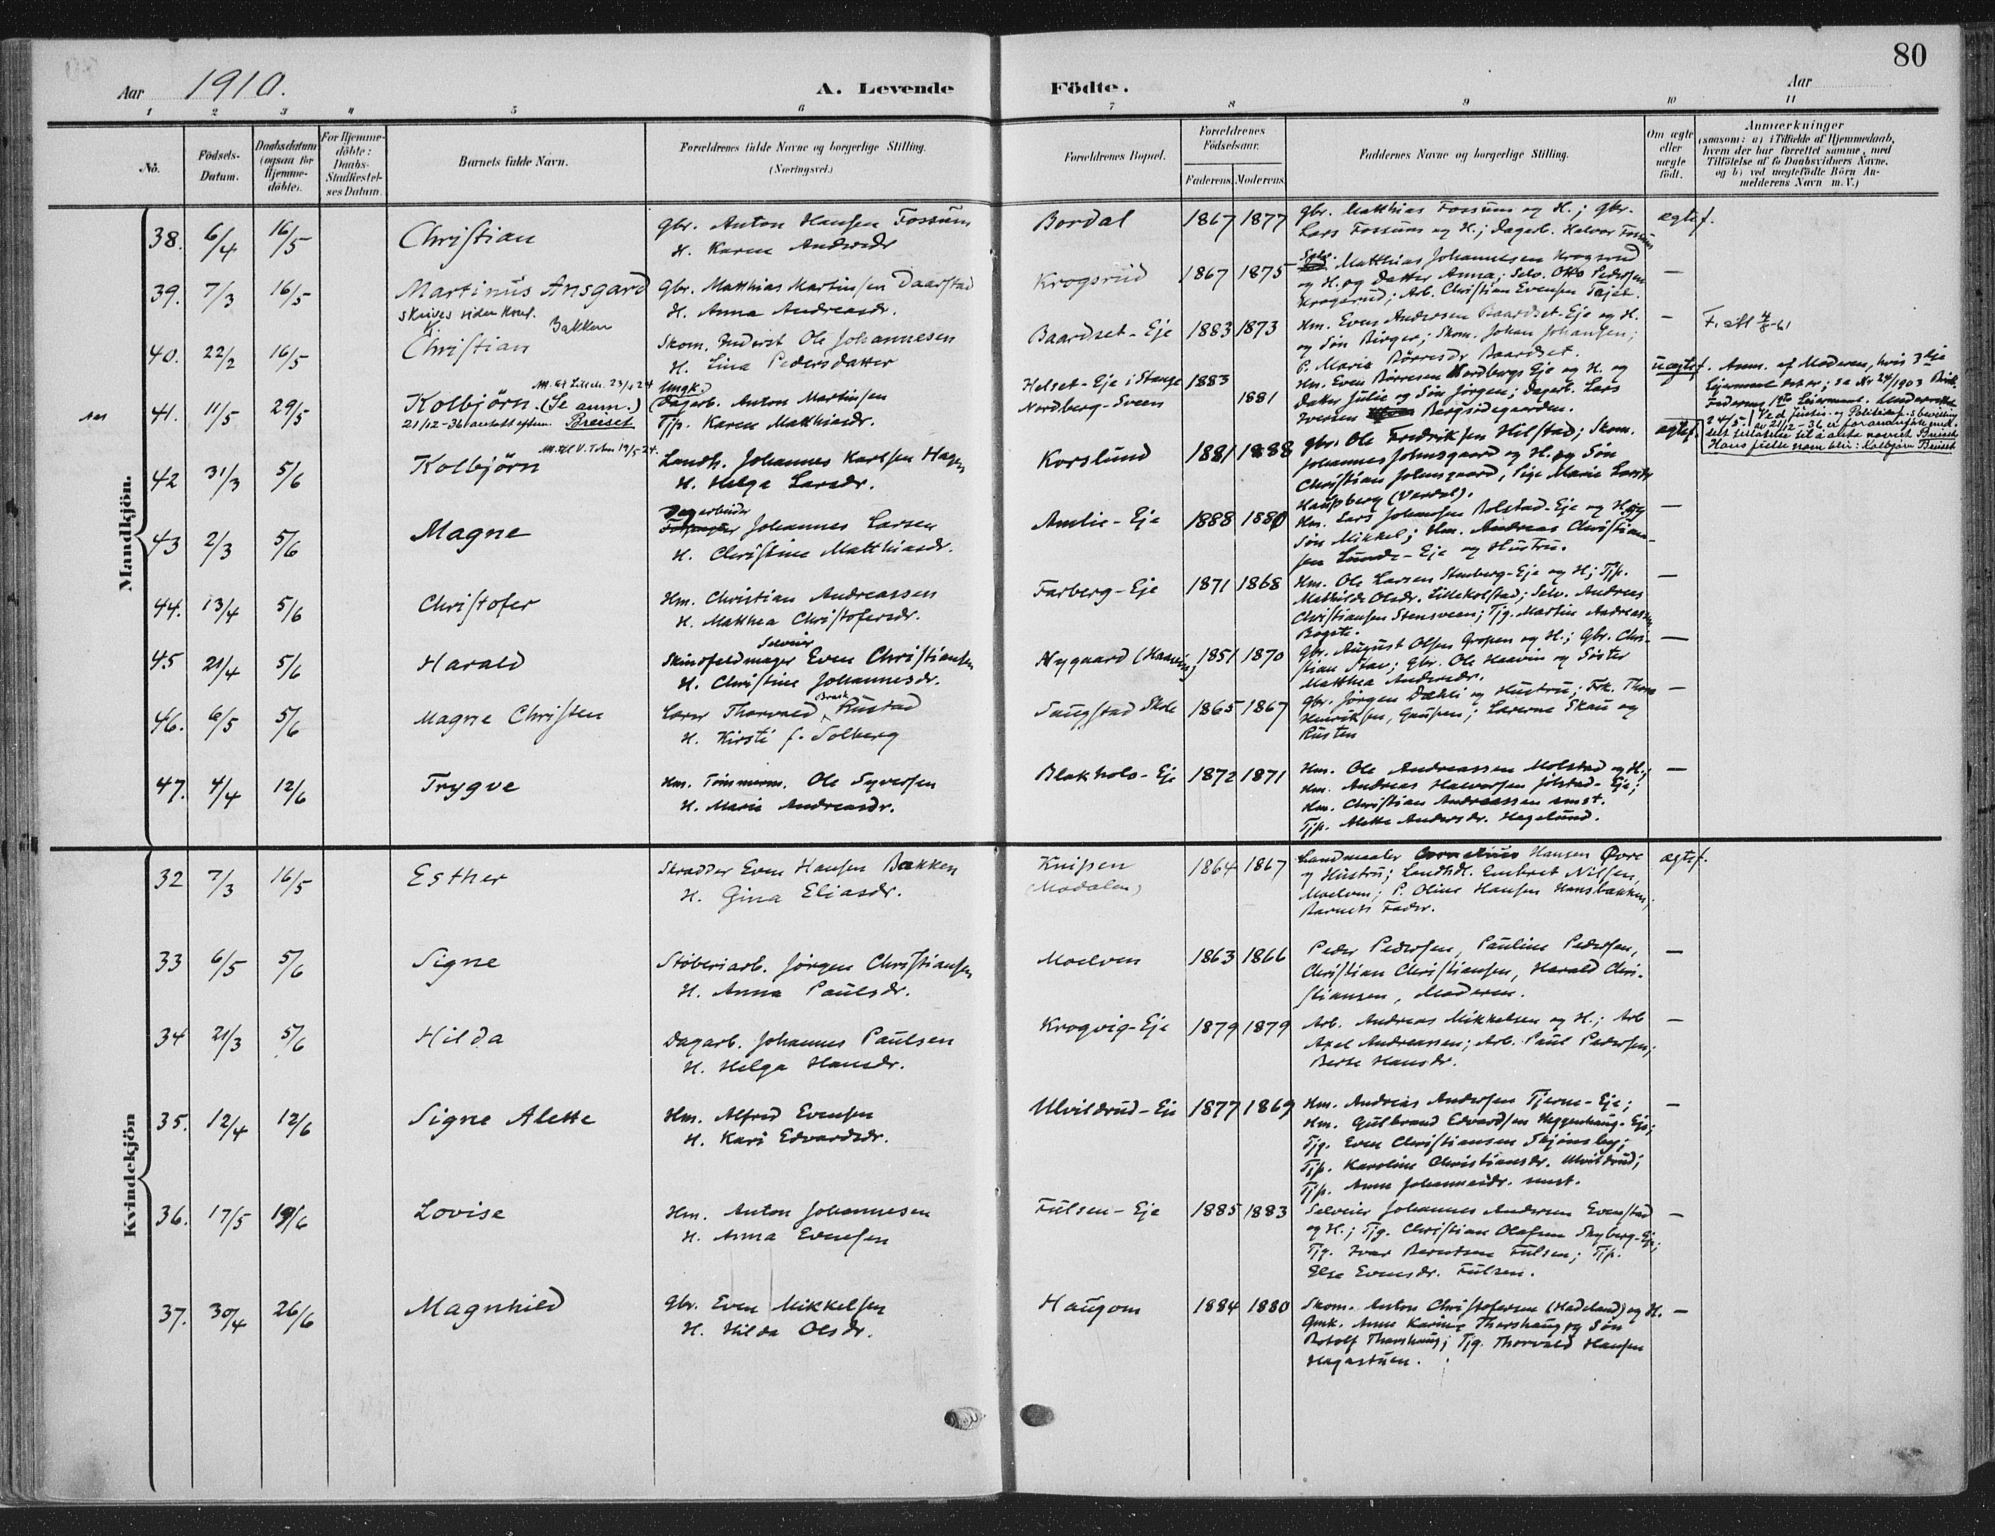 80
Aar 1910. A. Levende Födte. Aar
1 2 3 4 5 6 7 8 9 10 11
No. Födsels-Datum. Daabsdatum (ogsaa for Hjemme-döbte). For Hjemme-döbte: Daabs-Stadfæstel-ses Datum. Barnets fulde Navn. Forældrenes fulde Navne og borgerlige Stilling. (Næringsvei.) Forældrenes Bopæl. Forældrenes Födselsaar. Faderens. Moderens. Faddernes Navne og borgerlige Stilling. Om ægte eller uægte födt. Anmærkninger
(saasom: a) i Tilfælde af Hjemmedaab, hvem der har forrettet samme, med Tilföielse af to Daabsvidners Navne, og b) ved uægtefödte Börn Anmelderens Navn m. V.)
Mandkjön.
38. 6/4 16/5 Christian
Gbr. Anton Hansen Fossum
H. Karen Andersdr
Bordal 1867 1877
Gbr. Matthias Fossum og H.; Gbr.
Lars Fossum og H.; Dagarb. Halvor Fossum
ægtef.
39. 7/3 16/5 Martinus Ansgard
skrives siden konf. Bakken
Gbr. Matthias Martinsen Daarstad
H. Anna Andreasdr.
Krogsrud 1867 1875
Selv. Matthias Johannesen Krogsrud
og H. og Datter Anna; Selv. Otto Pedersen
Krogsrud; Arb. Christian Evensen Tajet.
—
40. 22/2 16/5 Christian
Skom. Inderst Ole Johannesen
H. Lina Pedersdatter
Baardset-Eje 1883 1873
Hm. Even Andersen Baardset-Eje og H.
og Søn Birger; Skom. Johan Johansen;
P. Marie Børresdr Baardset.
—
41. 11/5 29/5 Kolbjörn. (Se anm.)
21/12-36 antatt eftern. Breiset
Ungk.
(Dagarb. Anton Martinsen
Tjp. Karen Matthiasdr.
Helset-Eje i Stange 1883
Nordberg-Sveen 1881
Hm. Even Børresen Nordbergs Eje og H. og
Datter Julie og Søn Jørgen; Dagarb. Lars
Iversen Bergsødegaarden.
uægtef. Anm. af Moderen, hvis 3die
Leiermaal det er; se Nr 24/1903
Faderens 1ste Leiermaal.
Ved Justis- og Politidep.s bevilling
av 21/12-36 er forannevnte
delt tillatelse til å anta navnet Breiset
Hans fulle navn blir: Kolbjørn Breiset
42 31/3 5/6 Kolbjörn
Landh. Johannes Karlsen Hagen
H. Helga Larsdr.
Korslund 1881 1888
Gbr. Ole Fredriksen Hilstad; Skom.
Johannes Johnsgaard og H. og Søn
Christian Johnsgaard, Pige Marie Larsdr
(Verdal).
ægtef.
43 2/3 5/6 Magne
Dagarbeider
Johannes Larsen
H. Christine Matthiasdr.
Amlie-Eje 1888 1880
Hm. Lars Johansen Rolstad-Eje og H. og
Søn Mikkel; Hm. Andreas Christian-
sen Lunde-Eje og Hustru.
—
44. 13/4 5/6 Christofer
Hm. Christian Andreassen
H. Matthea Christofersdr.
Farberg-Eje 1871 1868
Hm. Ole Larsen Stenberg-Eje og H; Tjp.
Mathilde Olsdr. Lillekolstad; Selv. Andreas
Christiansen Stensveen; Tjg. Martin Andreassen
—
45 21/4 5/6 Harald
Selveier
Skindfeldmager Even Christiansen
H. Christine Johannesdr.
Nygaard 1851 1870
Gbr. August Olsen Gropen og H.; Gbr. Chri-
stian Stav; Gbr. Ole Heavin og Søster
Matthea Andersdr.
—
46. 6/5 5/6 Magne Christen
Lærer Thorvald Rustad
H. Kirsti f. Solberg
Saugstad Skole 1865 1867
Gbr. Jørgen Dæhli og Hustru; Frk. Thora
Henriksen, Gausen; Lærerne Skau og
Rusten
—
47. 4/4 12/6 Trygve
Hm. Tømmerm. Ole Syversen
H. Marie Andreasdr.
Blakhols-Eje 1872 1871
Hm. Ole Andreassen Molstad og H.;
Hm. Andreas Halvorsen Jølstad-Eje;
Hm. Christian Andreassen smst.
Tjp. Mette Andersdr. Hagelund.
—
Kvindekjön
32 7/3 16/5 Esther
Skrædder Even Hansen Bakken
H. Gina Eliasdr.
Knipsen
(Modalen) 1864 1867
Landmaaler Cornelius Hansen Øvre
og Hustru; Landhdl. Embret Nilsen,
Moelven; P. Oline Hansen Hansbakken,
Barnets Fader.
ægtef.
33 6/5 5/6 Signe
Støberiarb. Jørgen Christiansen
H. Anna Paulsdr.
Moelven 1863 1866
Peder Pedersen, Pauline Pedersen,
Christian Christiansen, Harald Chri-
stiansen, Moderen.
—
34 21/3 5/6 Hilda
Dagarb. Johannes Paulsen
H. Helga Hansdr.
Krogvig-Eje 1879 1879
Arb. Andreas Mikkelsen og H.; Arb
Axel Andreassen; Arb. Paul Pedersen;
Berte Hansdr.
—
35. 12/4 12/6 Signe Alette
Hm. Alfred Evensen
H. Kari Edvardsdr.
Ulvildrud-Eje 1877 1869
Hm. Andreas Andersen Tjerne-Eje;
Hm. Gulbrand Edvardsen Heggenhaug-Eje;
Tjg. Even Christiansen Skjønsby;
Tjp. Karoline Christiansdr. Ulvildrud;
Tjp. Anne Johannesdr. smst.
—
36. 17/5 19/6 Lovise
Hm. Anton Johannesen
H. Anna Evensen
Fulsen-Eje 1885 1883
Selveier Johannes Andersen Evenstad
og H.; Tjg. Christian Olafsen Skyberg-Eje;
Tjg. Ivar Berntsen Fulsen; Tjp.
Else Evensdr. Fulsen.
—
37. 30/4 26/6 Magnhild
Gbr. Even Mikkelsen
H. Hilda Olsdr.
Haugom 1884 1880
Skom. Anton Christofersen (Hadeland) og H.
Gmk. Anne Karine Thorshaug og Søn
Botolf Thorshaug; Tjg. Thorvald Hansen
Hagastuen.
—